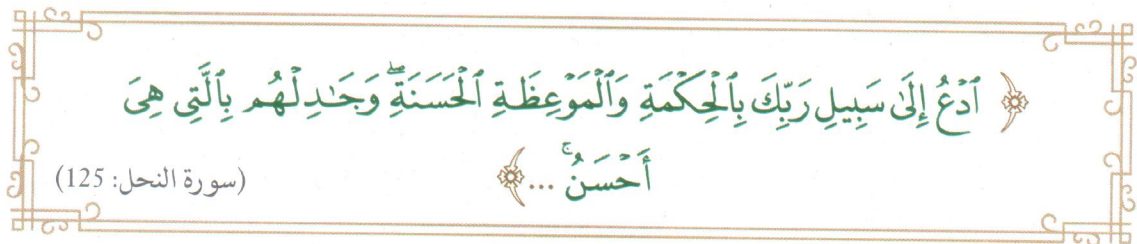 ﴿ ٱدۡعُ إِلَىٰ سَبِيلِ رَبِّكَ بِٱلۡحِكۡمَةِ وَٱلۡمَوۡعِظَةِ ٱلۡحَسَنَةِۖ وَجَٰدِلۡهُم بِٱلَّتِي هِيَ
أَحۡسَنُۚ ... ﴾ (سورة النحل: 125)